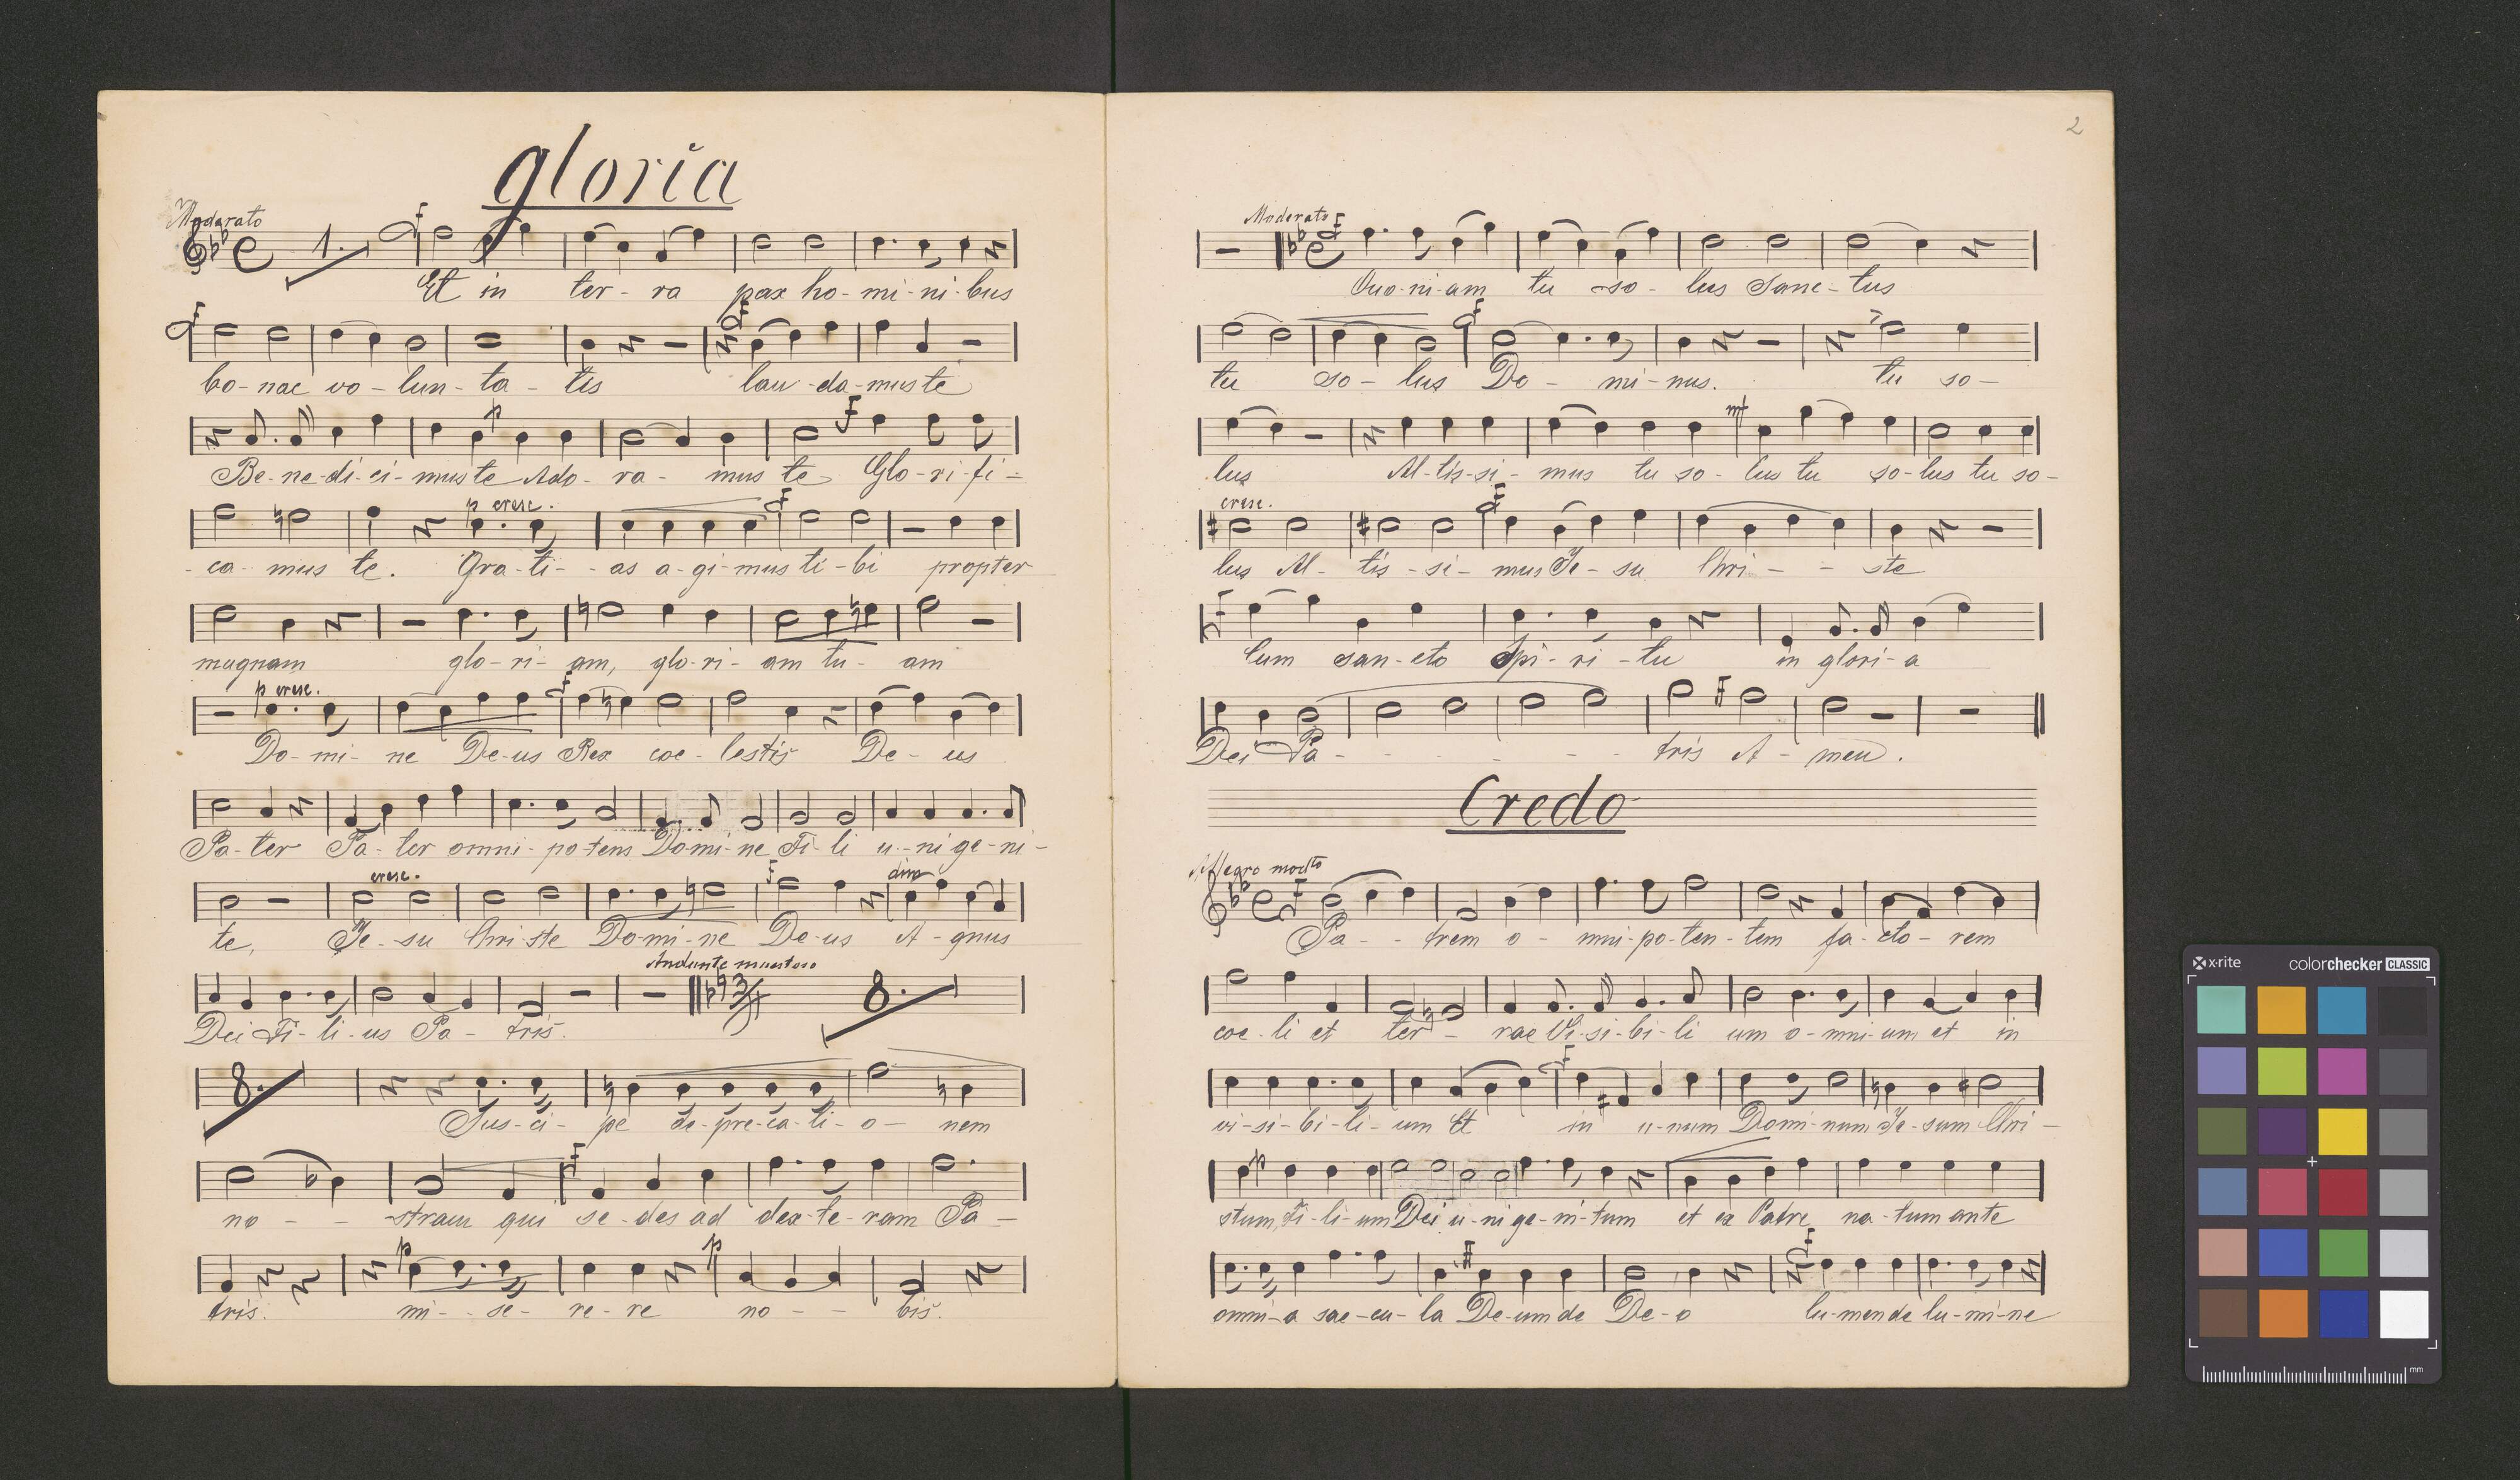 gloria
Moderato
1.
Et in ter - ra pax ho - mi - ni - bus
bo - nae vo - lun - ta - tis lau - da - mus te
Be - ne - di - ci - mus te Ado - ra - mus te Glo - ri - fi -
p cresc.
- ca - mus te. Gra - ti - as a - gi - mus ti - bi propter
magnam glo - ri - am, glo - ri - am tu - am
p cresc.
Do - mi - ne De - us Rex coe - lestis De - us
Pa - ter Pa - ter omni - po - tens Do - mi - ne Fi - li u - ni ge - ni -
cresc. f dim
te, Je - su Chri - ste Do - mi - ne De - us A - gnus
Andante maestoso
3/4 8.
Dei Fi - li - us Pa - tris.
8.
Sus - ci - pe de - pre - ca - ti - o - nem
no - - stram qui se - des ad dex - te - ram Pa -
p p
tris. mi - - se - re - re no - - bis.
2
Moderato f
Quo - ni - am tu so - lus Sanc - tus
tu so - lus Do - mi - nus. tu so -
mf
lus Al - tis - si - mus tu so - lus tu so - lus tu so -
cresc.
lus Al - tis - si - mus Je - su Chri - - ste
Cum san - cto Spi - ri - tu in glori - a
Dei Pa - - - - tris A - men.
Credo
Allegro molto
Pa - - trem o - mni - po - ten - tem fa - cto - rem
coe - li et ter - rae Vi - si - bi - li um o - mni - um et in
f
vi - si - bi - li - um Et in u - num Domi - num Je - sum Chri -
p
stum, Fi - li - um Dei u - ni ge - ni - tum et ex Patre na - tum ante
f
omni - a sae - cu - la De - um de De - o lu - men de lu - mi - ne
x-rite colorchecker CLASSIC
mm